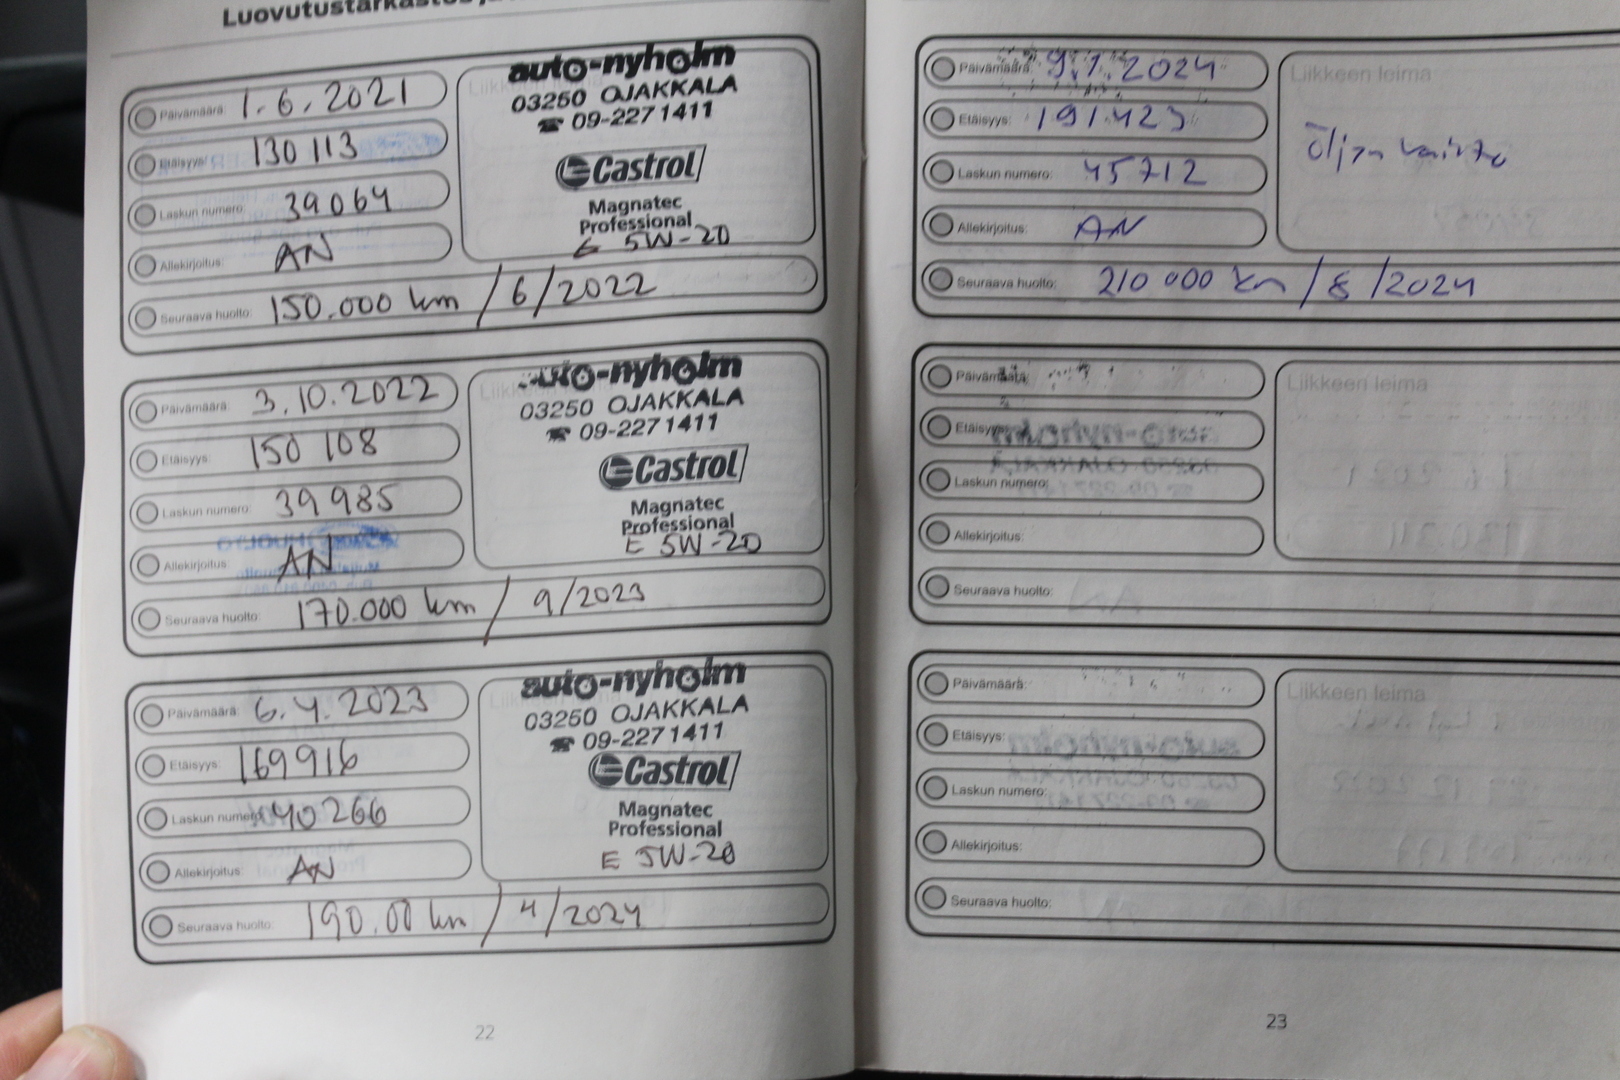 Luovutustarkastus
Päivämäärä: 1.6.2021
Etäisyys: 130 113
Laskun numero: 39064
Allekirjoitus: AN
Seuraava huolto: 150.000 km / 6/2022
Liikkeen leima
auto-nyholm
03250 OJAKKALA
☎ 09-2271411
Castrol
Magnatec
Professional
E 5W-20
Päivämäärä: 3.10.2022
Etäisyys: 150 108
Laskun numero: 39985
Allekirjoitus: AN
Seuraava huolto: 170.000 km / 9/2023
Liikkeen leima
auto-nyholm
03250 OJAKKALA
☎ 09-2271411
Castrol
Magnatec
Professional
E 5W-20
Päivämäärä: 6.4.2023
Etäisyys: 169916
Laskun numero: 40266
Allekirjoitus: AN
Seuraava huolto: 190.00 km / 4/2024
Liikkeen leima
auto-nyholm
03250 OJAKKALA
☎ 09-2271411
Castrol
Magnatec
Professional
E 5W-20
22
Päivämäärä: 9.1.2024
Etäisyys: 191423
Laskun numero: 45712
Allekirjoitus: AN
Seuraava huolto: 210 000 km / 8 /2024
Liikkeen leima
Öljyn vaihto
Päivämäärä:
Etäisyys:
Laskun numero:
Allekirjoitus:
Seuraava huolto:
Liikkeen leima
Päivämäärä:
Etäisyys:
Laskun numero:
Allekirjoitus:
Seuraava huolto:
Liikkeen leima
23